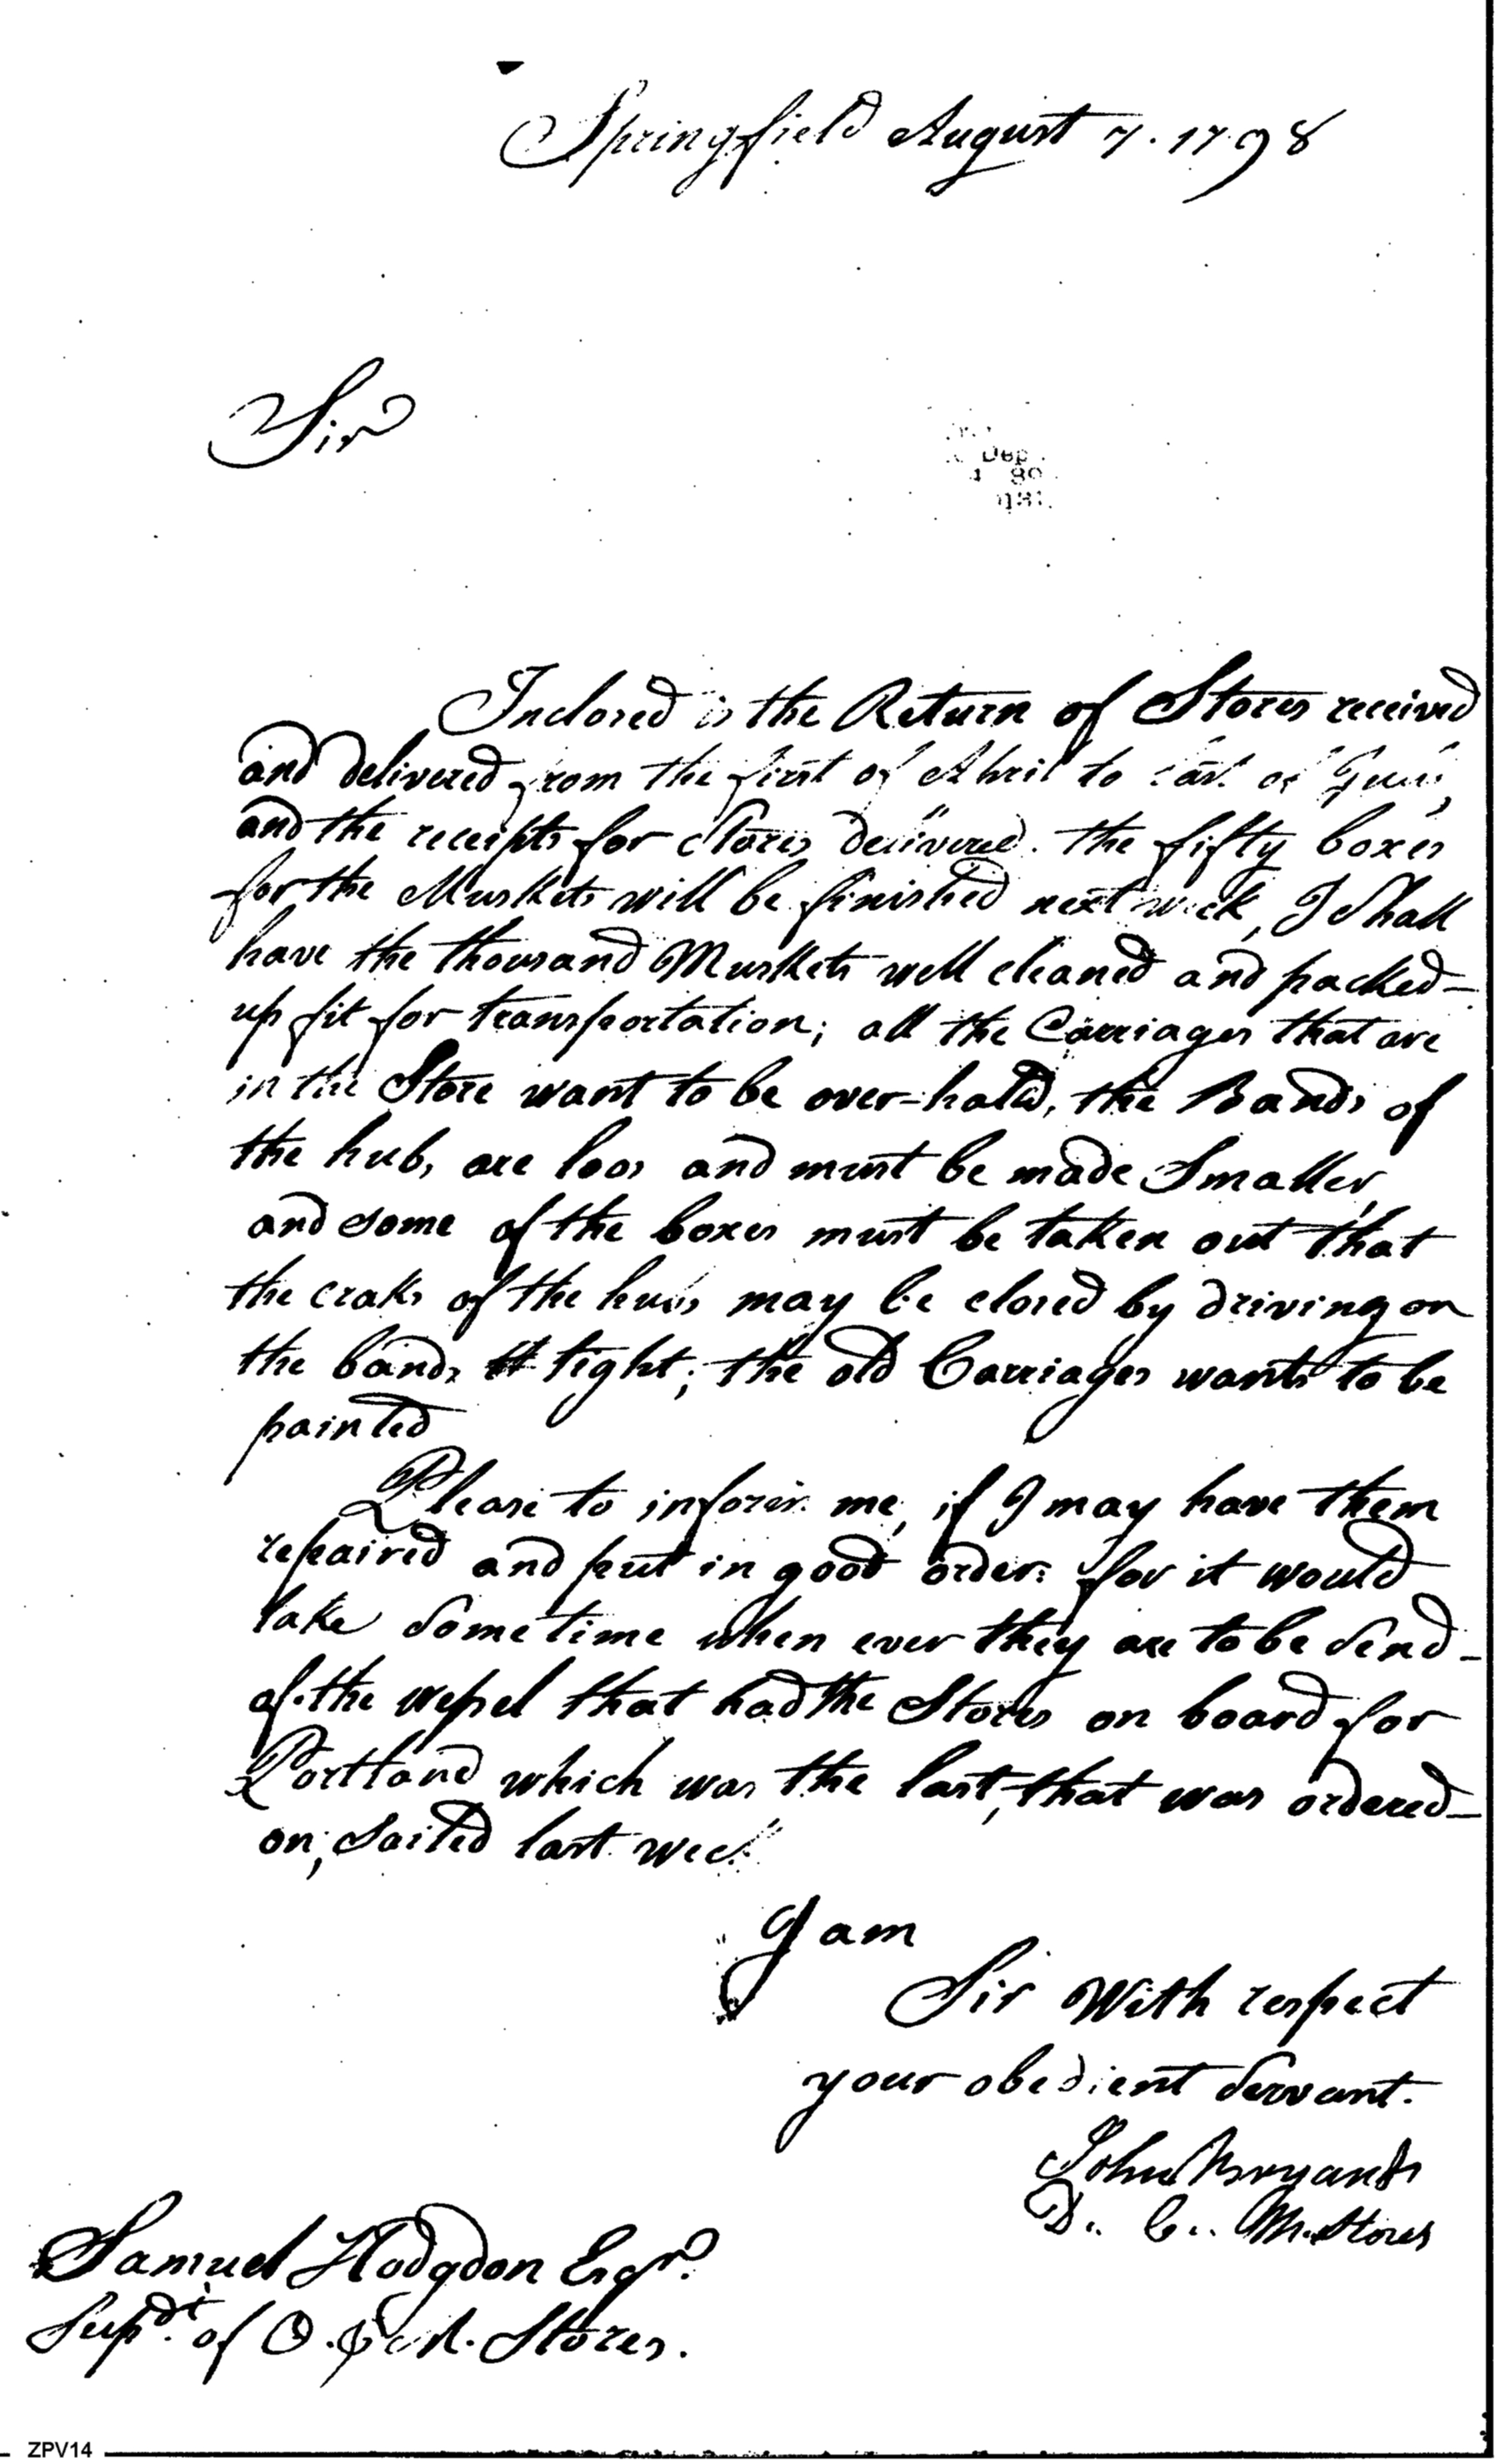 Springfield August 7. 1798
Sir
Dep
Inclosed is the Return of Stores received
and delivered from the first of April to last of June,
and the receipts for Stores delivered. the fifty boxes
for the Muskets will be finished next week, I Shall
have the thousand Muskets well cleaned and packed-
up fit for transportation; all the Carriages that are
in the Store want to be over-hald, the Bands of
the hubs are loos and must be made Smaller,
and some of the boxes must be taken out that
the craks of the hubs may be closed by driving on
the bands tight; the old Carriages wants to be
painted
Please to inform me, if I may have them
repaired and put in good order: for it would
take Some time when ever they are to be Send-
of. the wessel that had the Stores on board for
Portland which was the last, that was ordered-
on, Sailed last week
I am
Sir With respect
your obedient Servant.
John Bryant
D. C. M. Stores
Samuel Hodgdon Esqr.
Supdt. of O. & M. Stores.
ZPV14